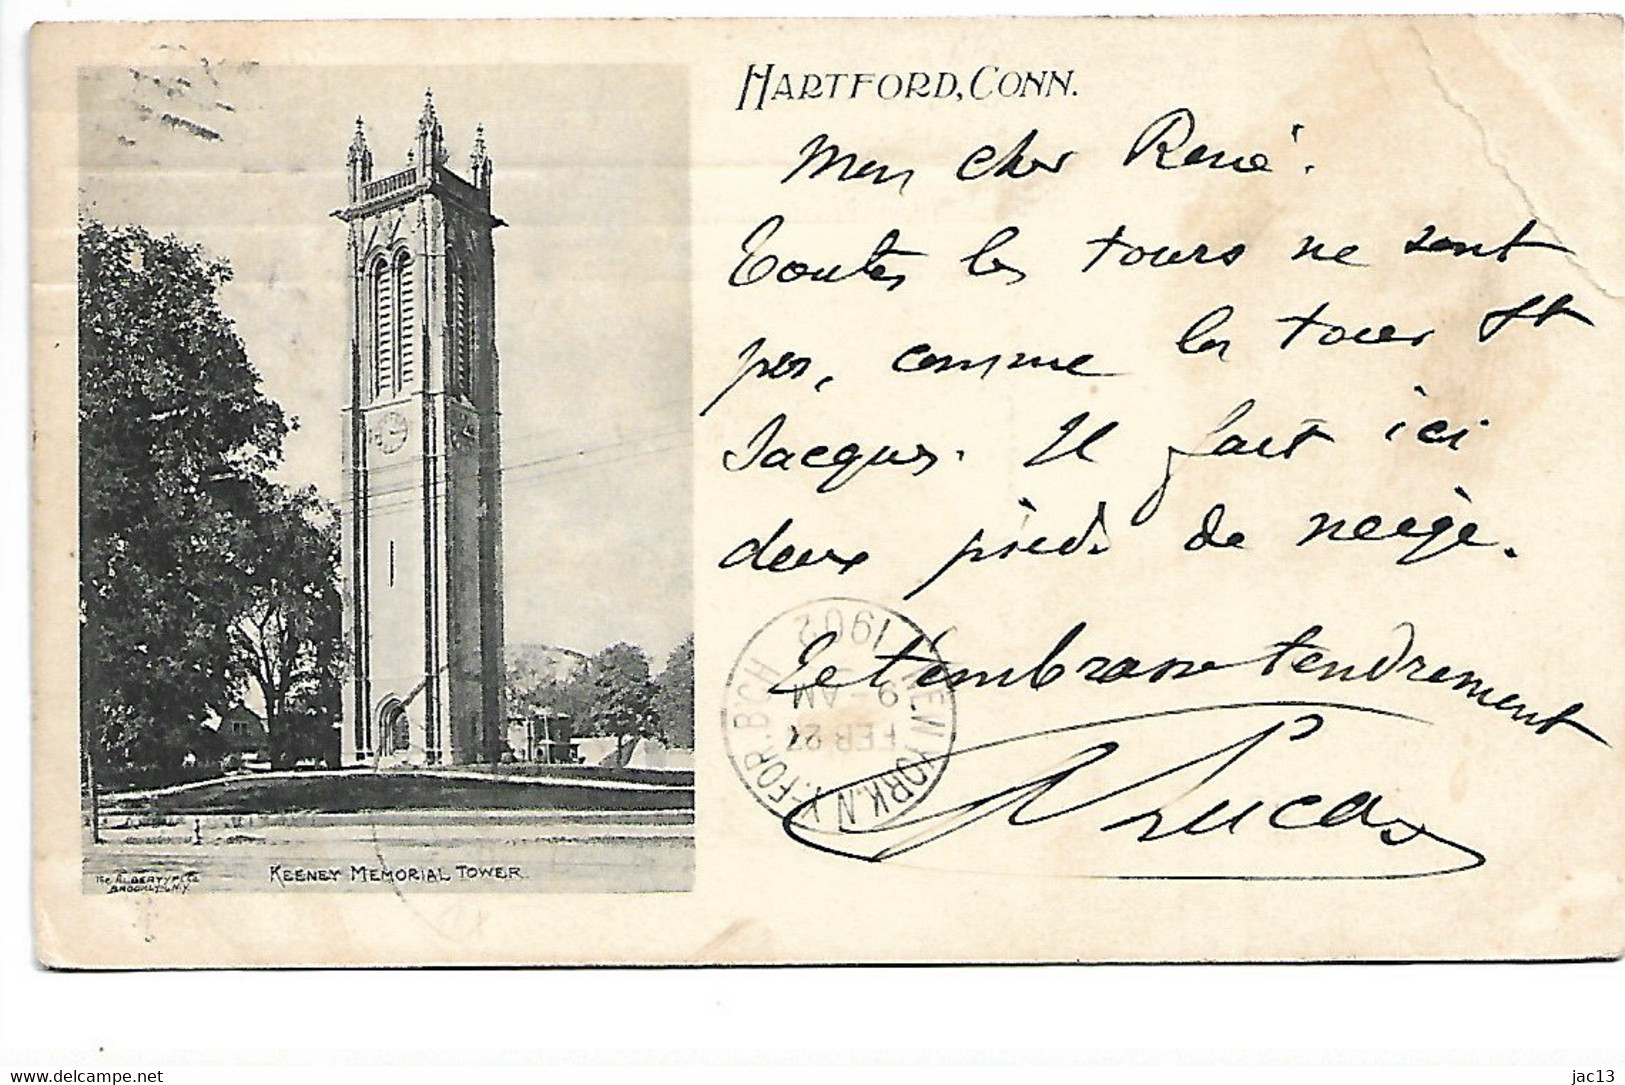 HARTFORD, CONN.
Mon cher René.
Toutes les tours ne sont
pas, comme la tour St
Jacques. Il fait ici
deux pieds de neige.
Je t'embrasse tendrement
Lucas
NEW YORK, N.Y. FOR. B'CH
FEB 27
9 - AM
1902
KEENEY MEMORIAL TOWER.
THE ALBERTYPE CO
BROOKLYN, N.Y.
www.delcampe.net
jac13